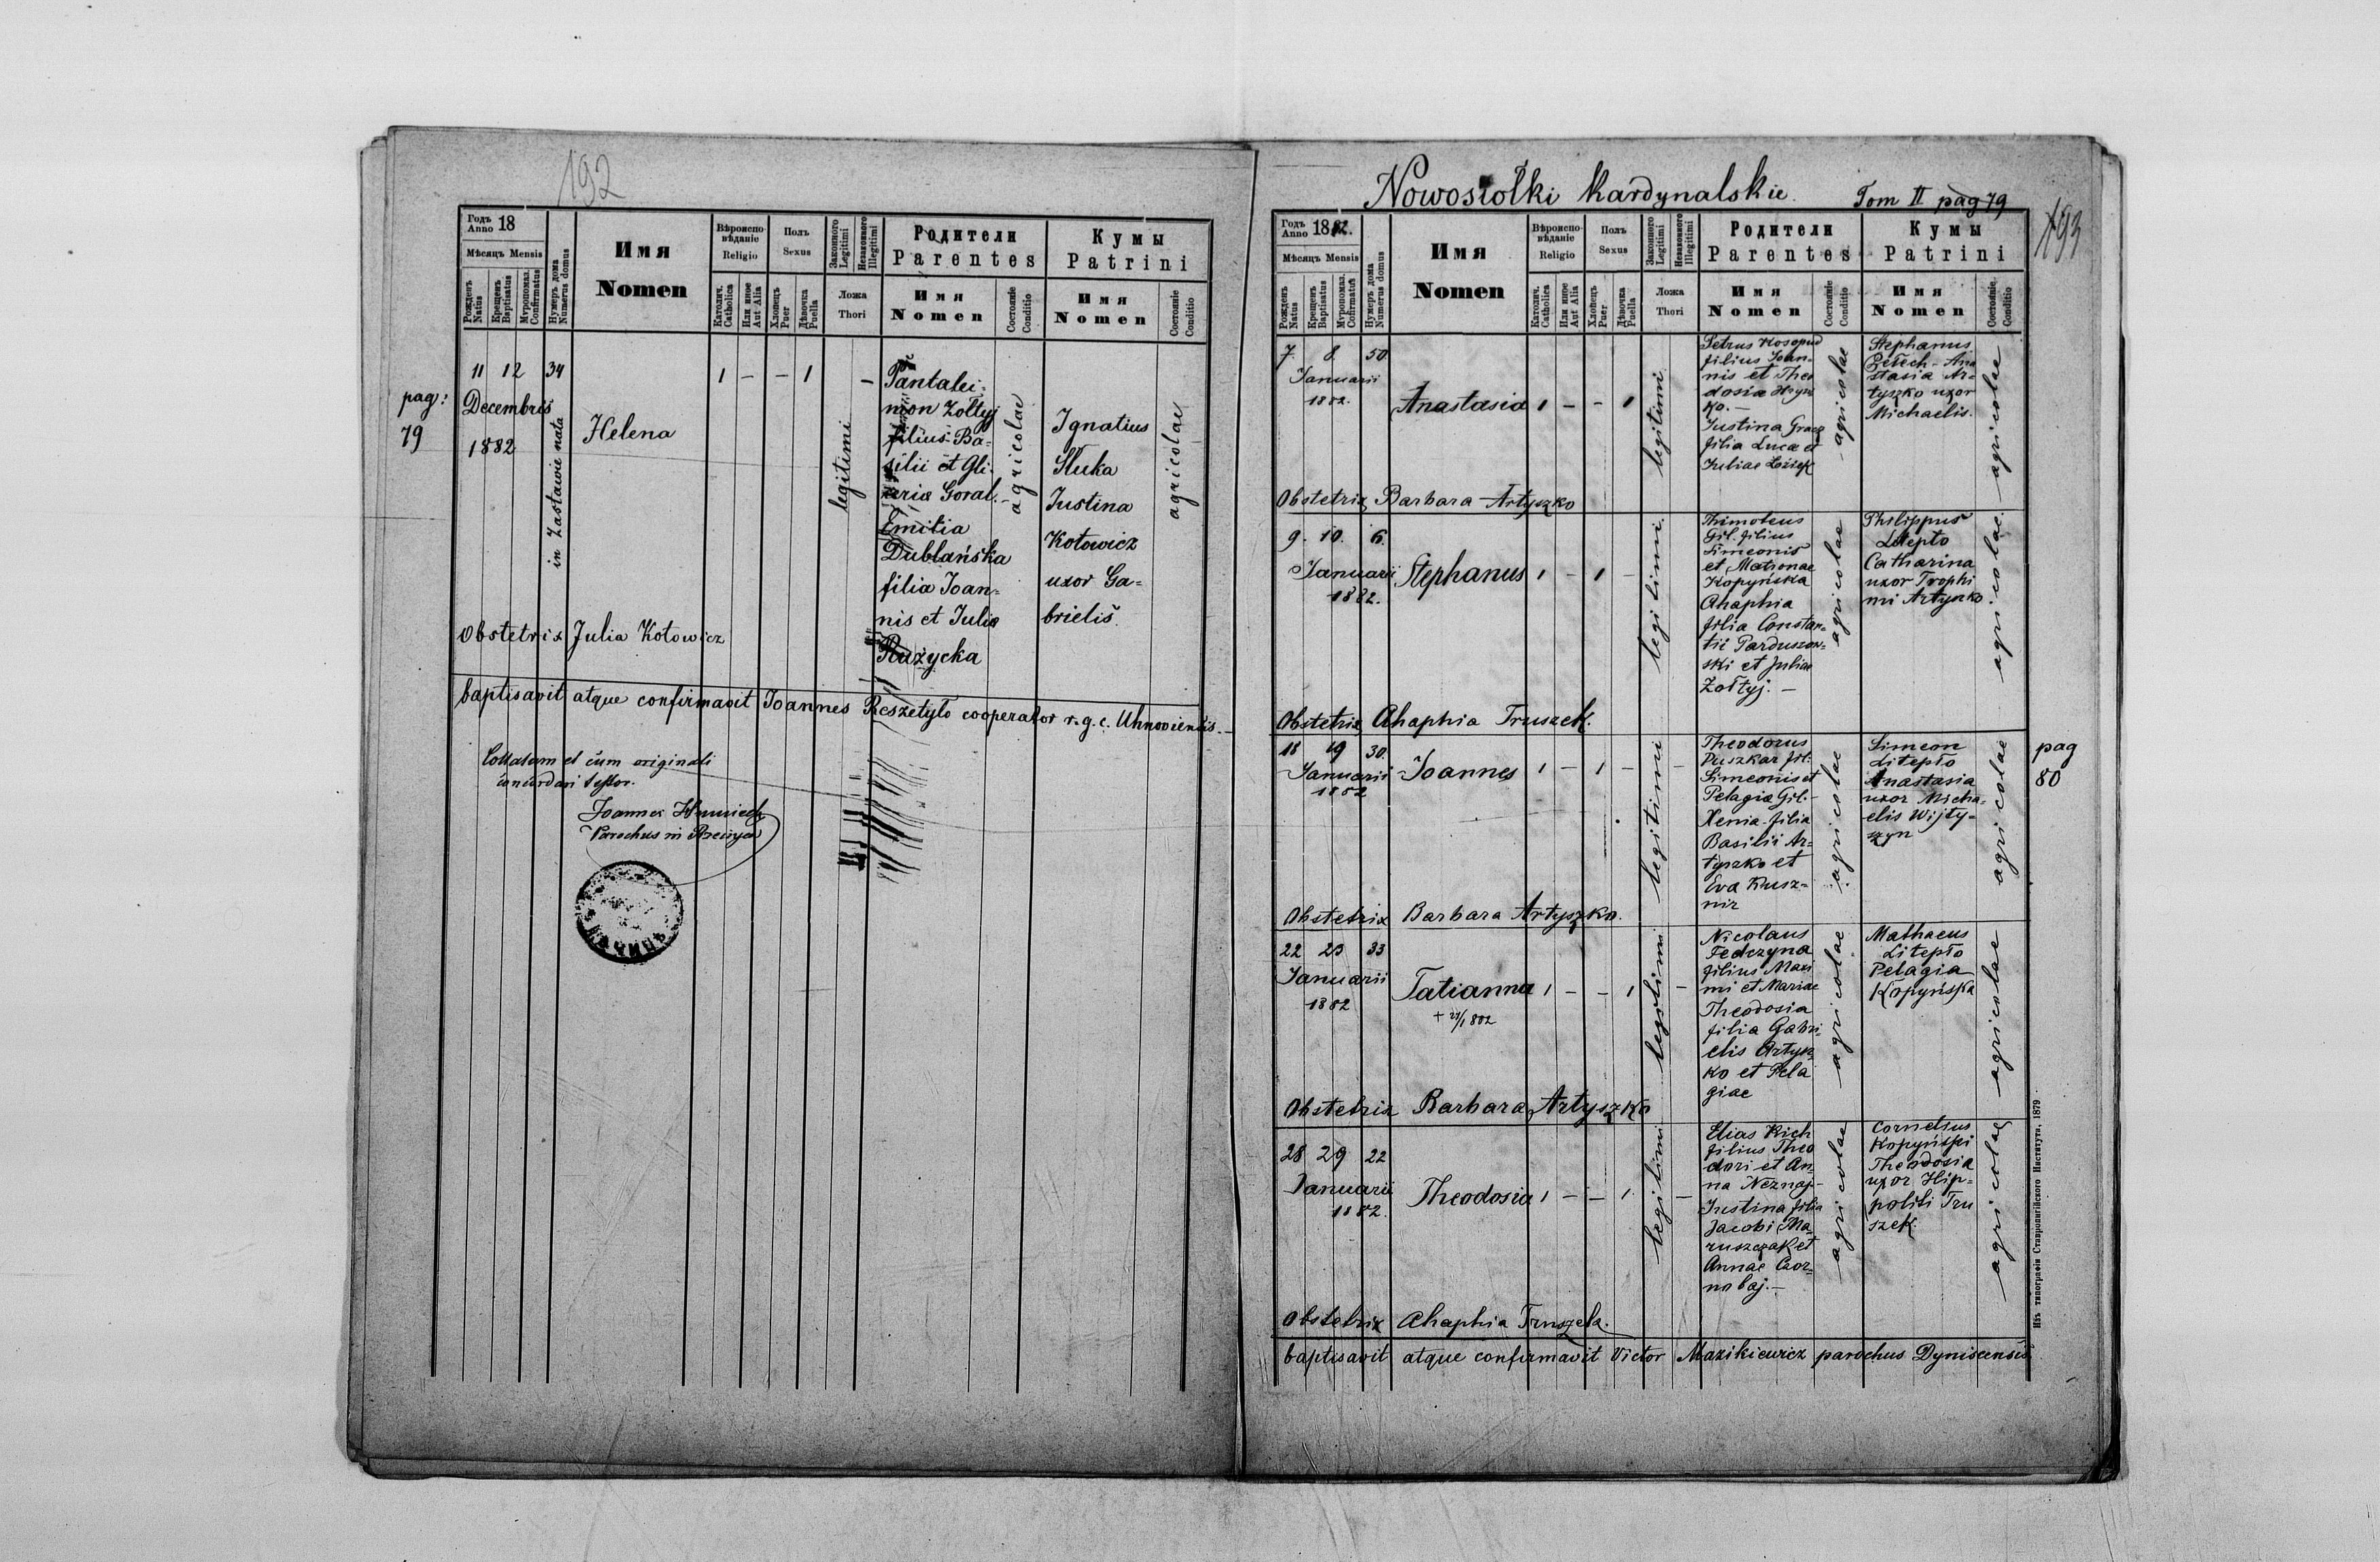 192
Годъ
Anno 18
Мѣсяцъ Mensis
Рожденъ
Natus
Крещенъ
Baptisatus
Мvропомаз.
Confirmatus
Нумеръ дома
Numerus domus
Имя
Nomen
Вѣроиспо-
вѣданіе
Religio
Католич.
Catholica
Или иное
Aut Alia
Полъ
Sexus
Хлопецъ
Puer
Дѣвочка
Puella
Законного
Legitimi
Незаконного
Illegitimi
Ложа
Thori
Родители
Parentes
Имя
Nomen
Состояніе
Conditio
Кумы
Patrini
Имя
Nomen
Состояніе
Conditio
pag:
79
11 12 34
Decembris
1882
in Zastawie nata
Helena
1 – – 1
legitimi
–
Pantalei-
mon Zołtyj
filius Ba-
silii et Gli-
keria Goral.
Emilia
Dublańska
filia Joan-
nis et Julia
Ružycka
agricolae
Ignatius
Sluka
Justina
Kotowicz
uxor Ga-
brielis.
agricolae
Obstetrix Julia Kotowicz
baptisavit atque confirmavit Joannes Reszetyło cooperator r.g.c. Uhnoviensis.
Collatum et cum originali
concordari testor.
Joannes
Parochus in
Nowosiołki Kardynalskie. Tom II pag 79
193
Годъ
Anno 1882.
Мѣсяцъ Mensis
Рожденъ
Natus
Крещенъ
Baptisatus
Мvропомаз.
Confirmatus
Нумеръ дома
Numerus domus
Имя
Nomen
Вѣроиспо-
вѣданіе
Religio
Католич.
Catholica
Или иное
Aut Alia
Полъ
Sexus
Хлопецъ
Puer
Дѣвочка
Puella
Законного
Legitimi
Незаконного
Illegitimi
Ложа
Thori
Родители
Parentes
Имя
Nomen
Состояніе
Conditio
Кумы
Patrini
Имя
Nomen
Состояніе
Conditio
7. 8. 50
Januarii
1882.
Anastasia 1 – – 1
legitimi
Petrus Kosopud
filius Joan-
nis et Theo
dosia
ko. –
Justina
filia Luca et
Juliae
agricolae
Stephanus
Ana
stasia Ar-
tyszko uxor
Michaelis.
agricolae
Obstetrix Barbara Artyszko
9. 10. 6.
Januarii
1882.
Stephanus 1 – 1 –
legitimi.
Thimoteus
Gil. filius
Simeonis
et Matronae
Kopyńska
Ahaphia
filia Constan-
tii Parduszow-
ski et Juliae
Zołtyj. –
agricolae
Philippus
Litepło
Catharina
uxor Trophi
mi Artyszko
agricolae
Obstetrix Ahaphia Truszek.
18 19 30.
Januarii
1882
Joannes 1 – 1 – –
legitimi
Theodorus
Puszkar fil.
Simeonis et
Pelagia Gil. –
Xenia filia
Basilii Ar-
tyszko et
Eva Kusz-
nir
agricolae
Simeon
Litepło
Anastasia
uxor Micha-
elis Wijty-
szyn
agricolae
pag
80
Obstetrix Barbara Artyszko.
22 23 33
Januarii
1882
Tatianna 1 – – 1 –
legitimi
Nicolaus
Fedczyna
filius Maxi
mi et Mariae
Theodosia
filia Gabri-
elis Artysz
ko et Pela
giae
agricolae
Mathaeus
Litepło
Pelagia
Kopyńska
agricolae
Obstetrix Barbara Artyszko
28 29 22
Januarii
1882.
Theodosia 1 – – 1 –
legitimi
Elias Kich
filius Theo
dori et An-
na Neznaj-
Justina filia
Jacobi Ma-
ruszczak et
Annae Czor-
nobaj. –
agricolae
Cornelius
Kopyński
Theodosia
uxor Hip-
politi Tru
szek
agricolae
Obstetrix Ahaphia Truszek.
baptisavit atque confirmavit Victor Mazikiewicz parochus Dyniscensis
Изъ типографіи Ставропигійского Института, 1879